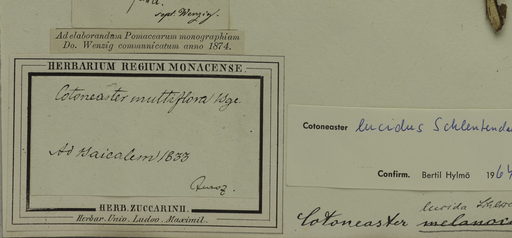 sept. Wenzig.
Ad elaborandam Pomacearum monographiam
Do. Wenzig communicatum anno 1874.
HERBARIUM REGIUM MONACENSE.
Cotoneaster multiflora Bge.
Ad Baicalem 1833
HERB. ZUCCARINII.
Herbar. Univ. Ludov. Maximil.
Cotoneaster lucidus Schlechtendal
Confirm. Bertil Hylmö 196
lucida Schlecht
Cotoneaster melanoca